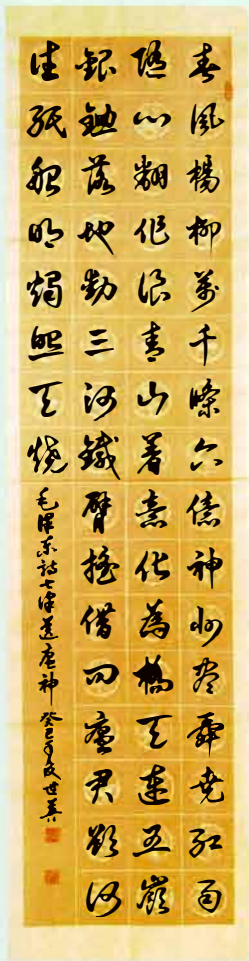 春風楊柳萬千條六億神州盡舜堯紅雨
隨心翻作浪青山著意化為橋天連五嶺
銀鋤落地動三河鐵臂搖借問瘟君欲何
往紙船明燭照天燒
毛澤東詩七律送瘟神 癸巳年 世英